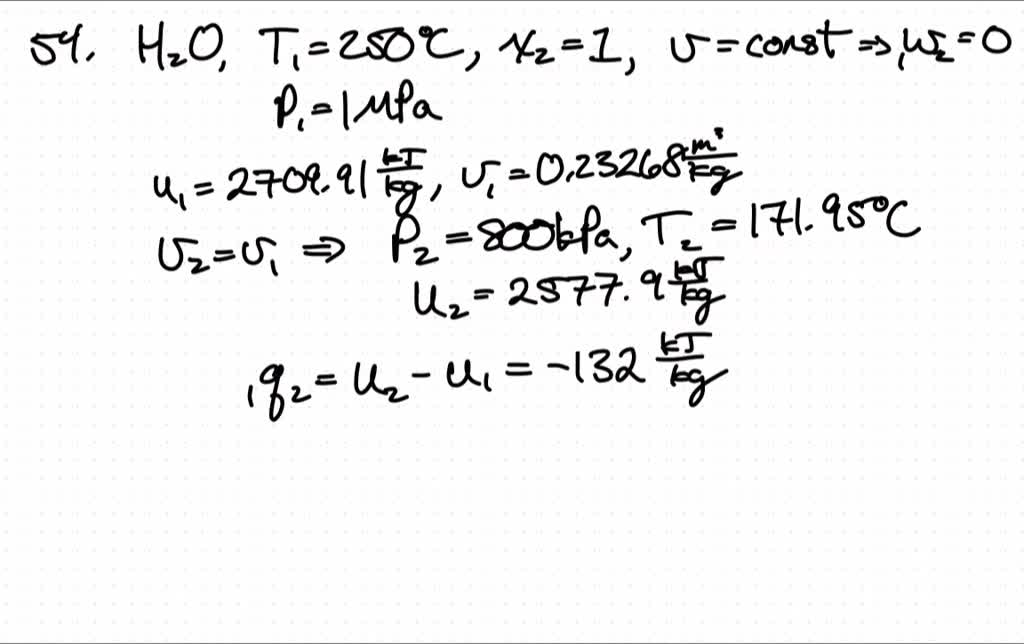 54. H₂O, T₁ = 250°C, x₂ = 1, v = const ⇒ ₁w₂ = 0
P₁ = 1 MPa
u₁ = 2709.91 kJ/kg, v₁ = 0.23268 m³/kg
v₂ = v₁ ⇒ P₂ = 800 kPa, T₂ = 171.95°C
u₂ = 2577.9 kJ/kg
₁q₂ = u₂ - u₁ = -132 kJ/kg